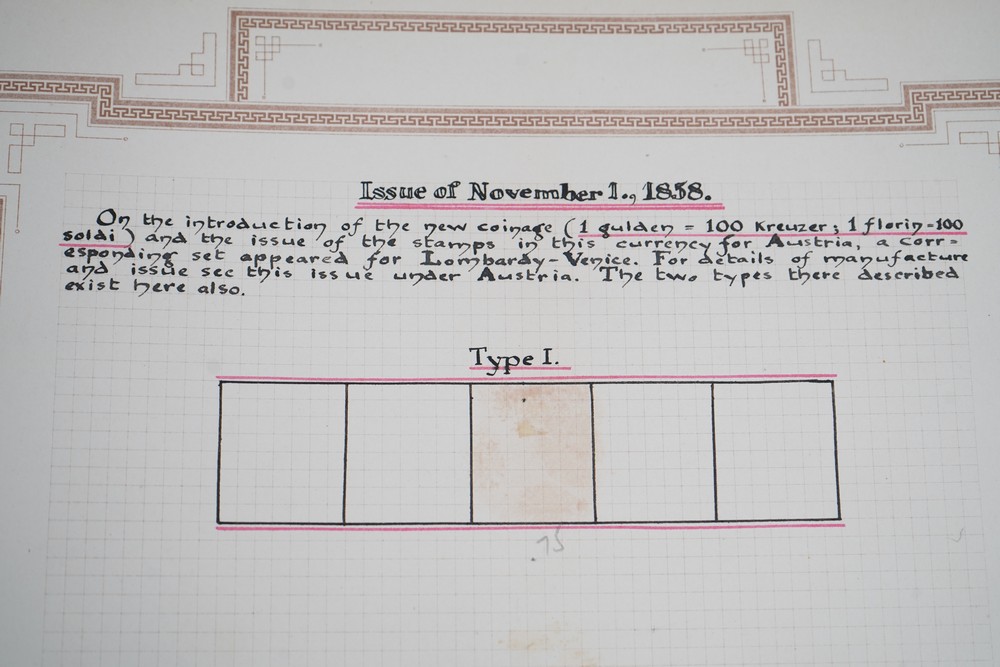 Issue of November 1., 1858.
On the introduction of the new coinage (1 gulden = 100 Kreuzer; 1 florin=100
soldi) and the issue of the stamps in this currency for Austria, a corr=
esponding set appeared for Lombardy-Venice. For details of manufacture
and issue see this issue under Austria. The two types there described
exist here also.
Type I.
.75